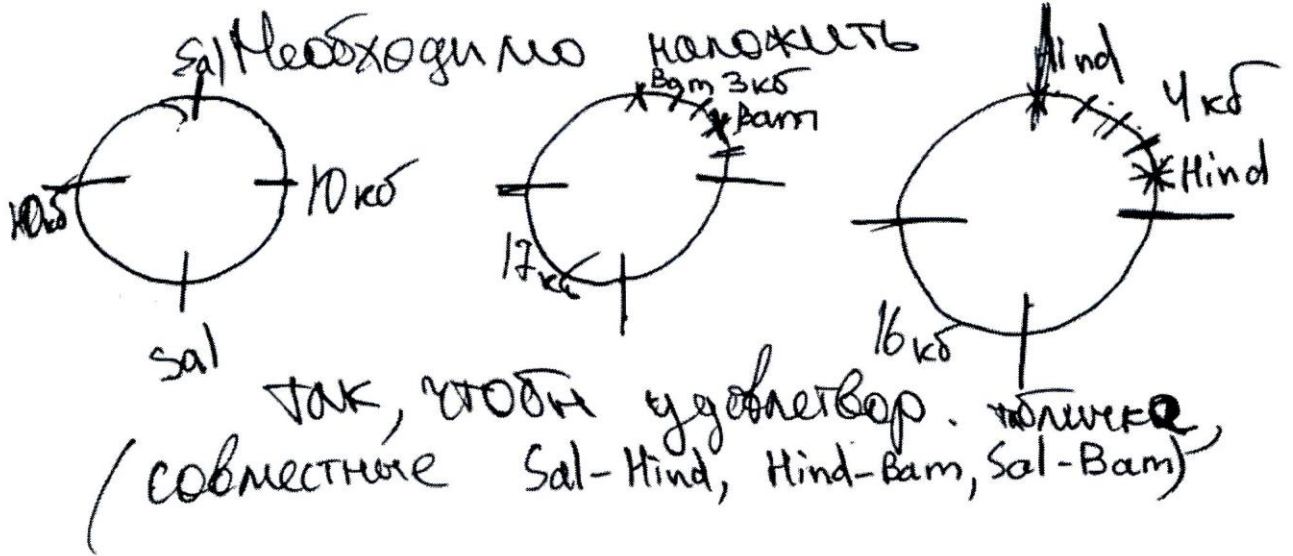 Необходимо наложить
Sal
10кб
10кб
Sal
Bam 3кб
Bam
17кб
Hind
4кб
Hind
16кб
так, чтобы удовлетвор. табличке,
(совместные Sal-Hind, Hind-Bam, Sal-Bam)